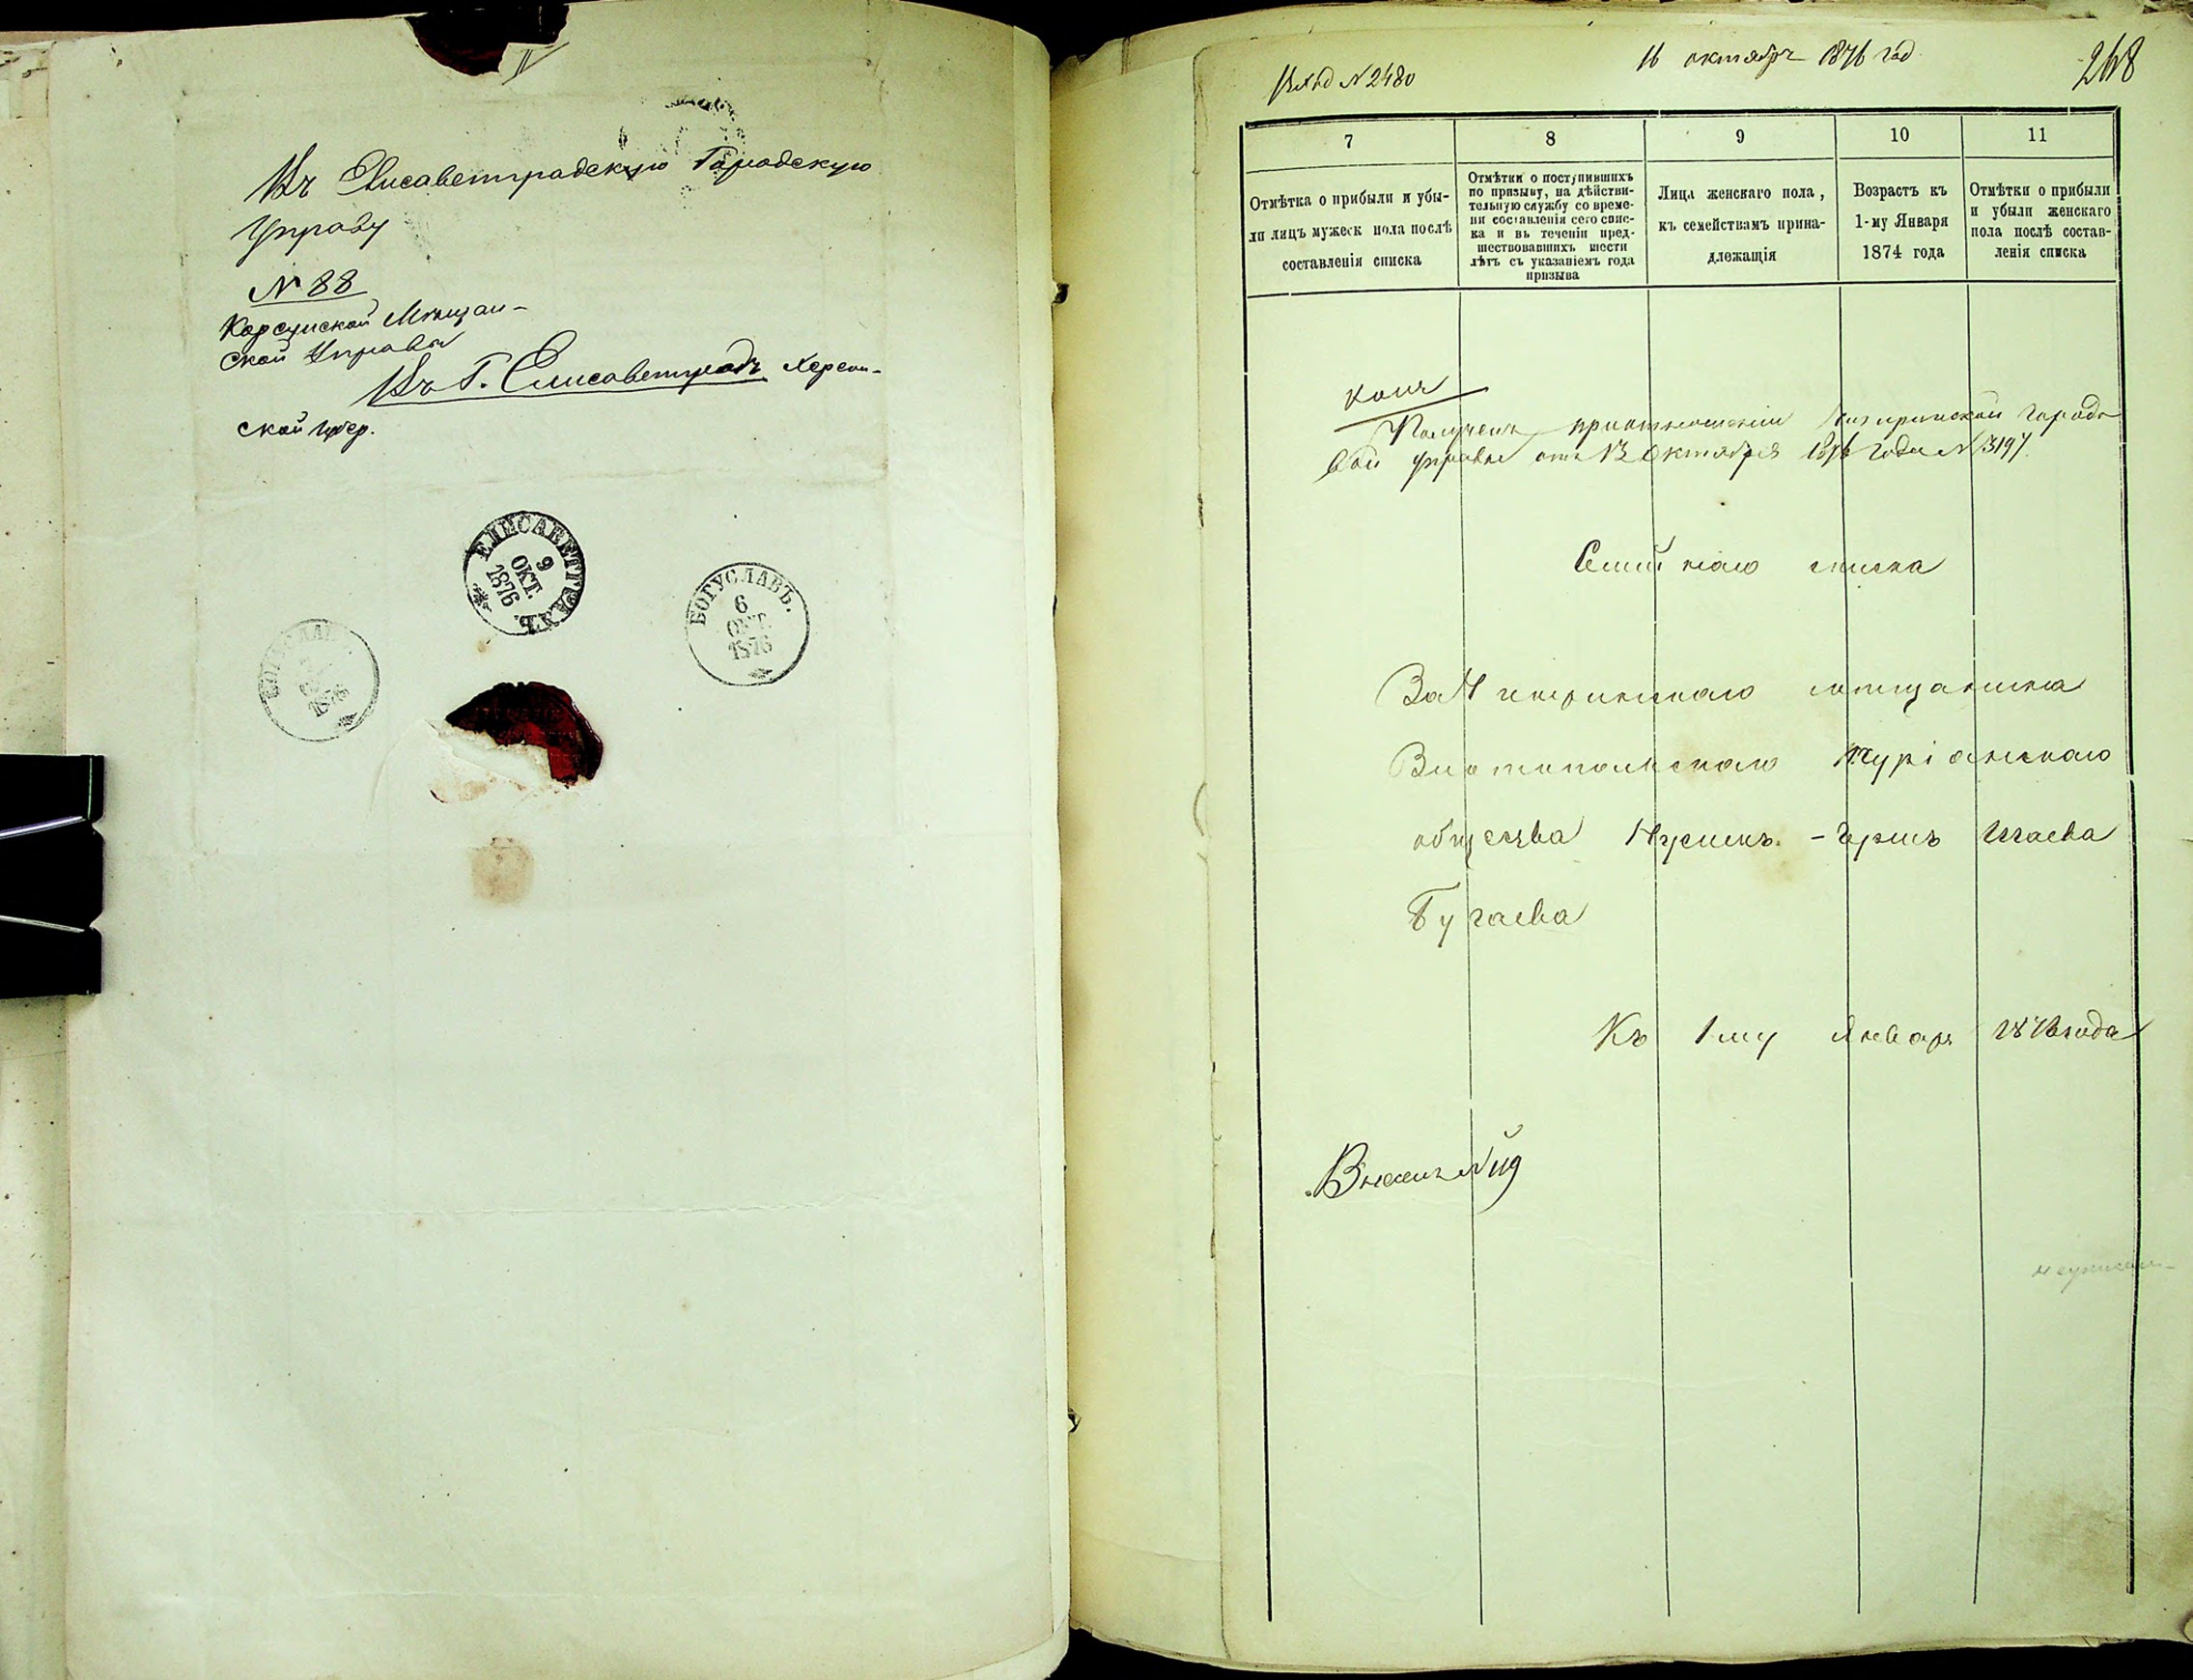 Въ Елисаветградскую Городскую
Управу
№ 88
Корсунской Мѣщан-
ской Управы
Въ Г. Елисаветградъ Херсон-
ской губер.
ЕЛИСАВЕТГРАДЪ.
9
ОКТ.
1876
БОГУСЛАВЪ.
6
ОКТ.
1876
1876
Вход № 2480
16 октября 1876 год
268
7
8
9
10
11
Отмѣтка о прибыли и убы-
ли лицъ мужеск пола послѣ
составленія списка
Отмѣтки о поступившихъ
по призыву, на дѣйстви-
тельную службу со време-
ни составленія сего спис-
ка и въ теченіи пред-
шествовавшихъ шести
лѣтъ съ указаніемъ года
призыва
Лица женскаго пола,
къ семействамъ прина-
длежащія
Возрастъ къ
1-му Января
1874 года
Отмѣтки о прибыли
и убыли женскаго
пола послѣ состав-
ленія списка
Копія
Получена при отношеніи Чигиринской Городо
вой управы отъ 13 Октября 1876 года № 3197
Семейнаго списка
За Чигиринскаго мѣщанина
общества Нусинъ - Герш Исаева
Бугаева
Къ 1 му Январ 1876 года
Внесенъ № 119